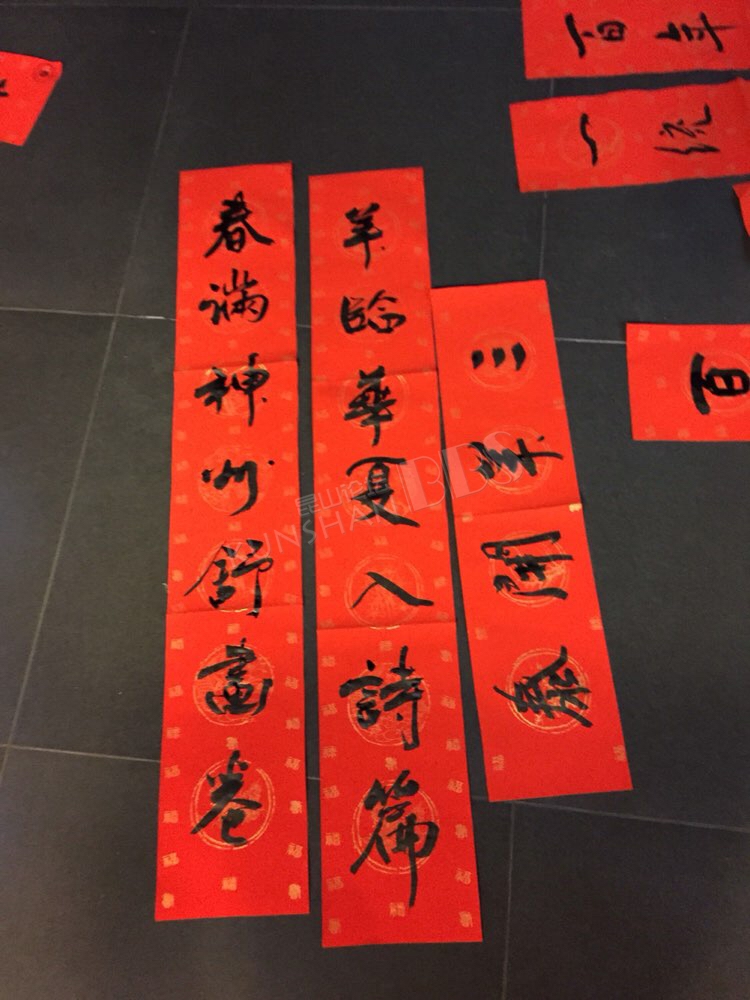 春滿神州舒畫卷
羊臨華夏入詩篇
三羊開泰
一流
百
KUNSHAN BBS